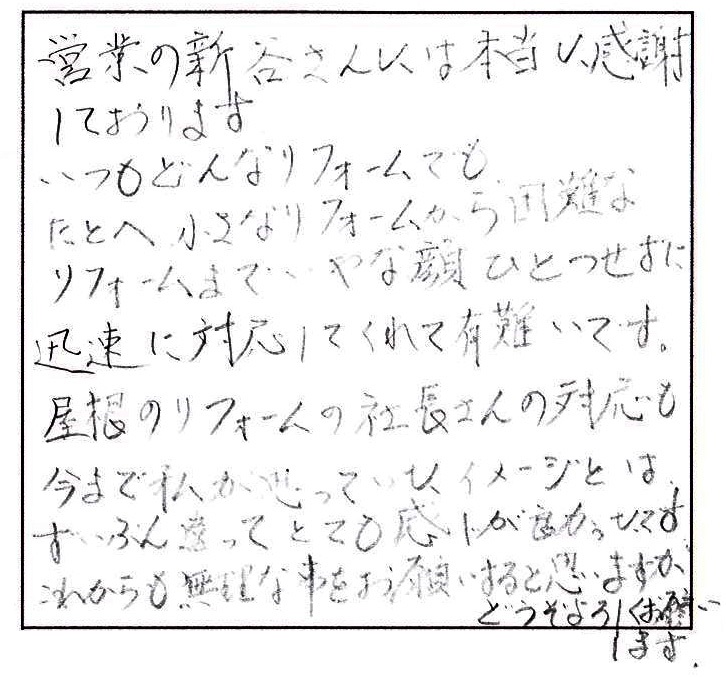 営業の新谷さんには本当に感謝
しております
いつもどんなリフォームでも
たとへ小さなリフォームから困難な
リフォームまでいやな顔ひとつせずに
迅速に対応してくれて有難いです。
屋根のリフォームの社長さんの対応も
今まで私が思っていたイメージとは
ずいぶん違ってとても感じが良かったです
これからも無理な事をお願いすると思いますが
どうぞよろしくお願い
します.